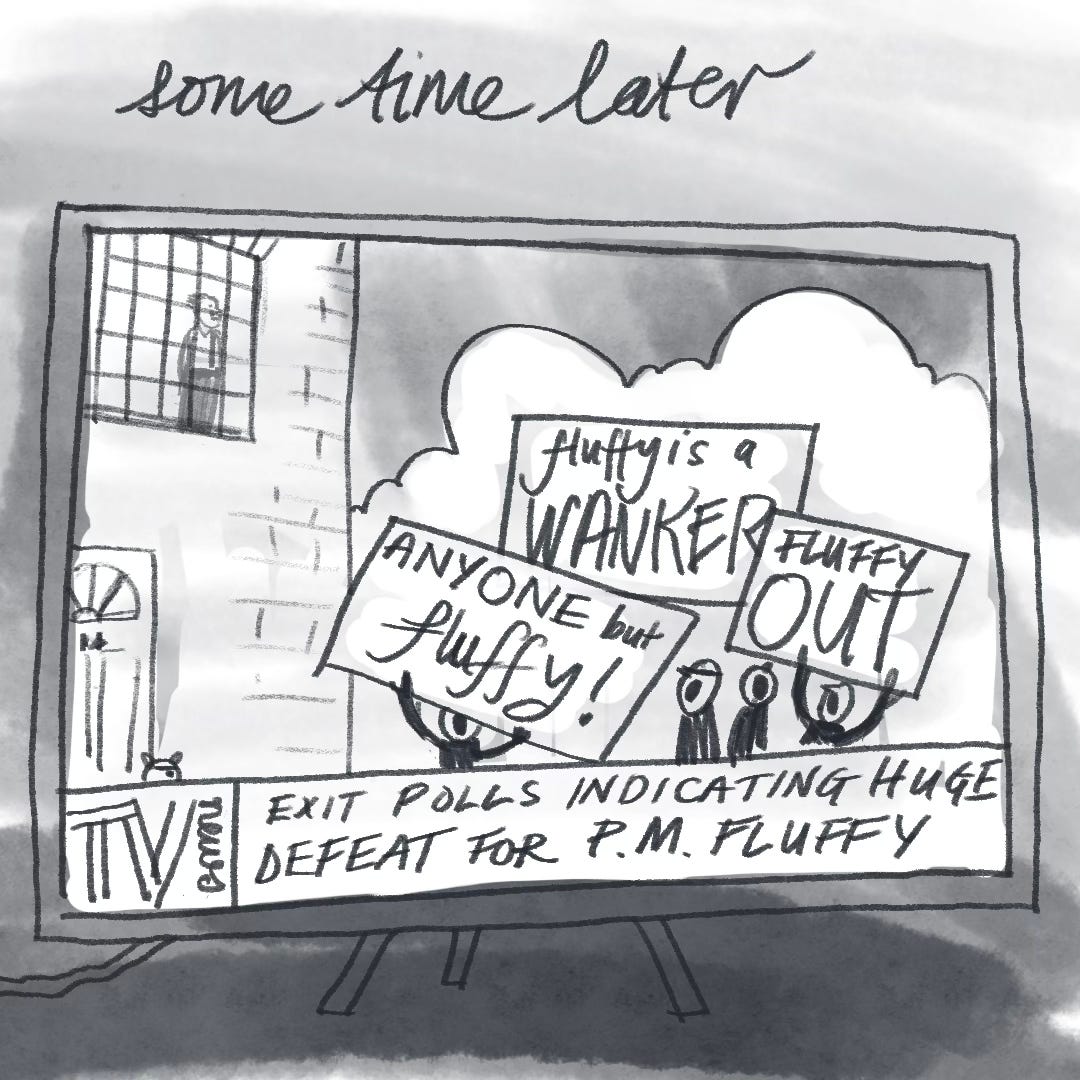 some time later
fluffy is a
WANKER
ANYONE but
fluffy!
FLUFFY
OUT
TV news
EXIT POLLS INDICATING HUGE
DEFEAT FOR P.M. FLUFFY